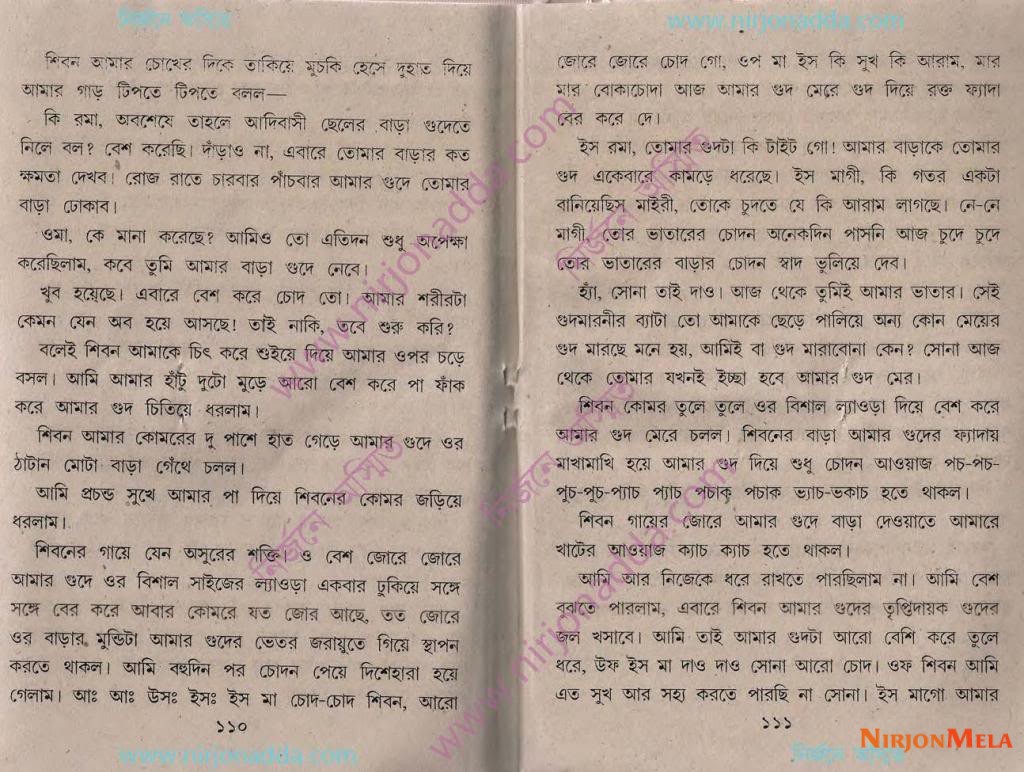 নির্জনে অস্মিত
www.nirjonadda.com
শিবন আমার চোখের দিকে তাকিয়ে মুচকি হেসে দুহাত দিয়ে
আমার গাড় টিপতে টিপতে বলল—
কি রমা, অবশেষে তাহলে আদিবাসী ছেলের বাড়া গুদেতে
নিলে বল? বেশ করেছি। দাঁড়াও না, এবারে তোমার বাড়ার কত
ক্ষমতা দেখব। রোজ রাতে চারবার পাঁচবার আমার গুদে তোমার
বাড়া ঢোকাব।
ওমা, কে মানা করেছে? আমিও তো এতদিন শুধু অপেক্ষা
করেছিলাম, কবে তুমি আমার বাড়া গুদে নেবে।
খুব হয়েছে। এবারে বেশ করে চোদ তো। আমার শরীরটা
কেমন যেন অব হয়ে আসছে! তাই নাকি, তবে শুরু করি?
বলেই শিবন আমাকে চিৎ করে শুইয়ে দিয়ে আমার ওপর চড়ে
বসল। আমি আমার হাঁটু দুটো মুড়ে আরো বেশ করে পা ফাঁক
করে আমার গুদ চিতিয়ে ধরলাম।
শিবন আমার কোমরের দু পাশে হাত গেড়ে আমার গুদে ওর
ঠাটান মোটা বাড়া গেঁথে চলল।
আমি প্রচন্ড সুখে আমার পা দিয়ে শিবনের কোমর জড়িয়ে
ধরলাম।
শিবনের গায়ে যেন অসুরের শক্তি। ও বেশ জোরে জোরে
আমার গুদে ওর বিশাল সাইজের ল্যাওড়া একবার ঢুকিয়ে সঙ্গে
সঙ্গে বের করে আবার কোমরে যত জোর আছে, তত জোরে
ওর বাড়ার মুন্ডিটা আমার গুদের ভেতর জরায়ুতে গিয়ে স্থাপন
করতে থাকল। আমি বহুদিন পর চোদন পেয়ে দিশেহারা হয়ে
গেলাম। আঃ আঃ উসঃ ইসঃ ইস মা চোদ-চোদ শিবন, আরো
১১০
www.nirjonadda.com
জোরে জোরে চোদ গো, ওপ মা ইস কি সুখ কি আরাম, মার
মার বোকাচোদা আজ আমার গুদ মেরে গুদ দিয়ে রক্ত ফ্যাদা
বের করে দে।
ইস রমা, তোমার গুদটা কি টাইট গো! আমার বাড়াকে তোমার
গুদ একেবারে কামড়ে ধরেছে। ইস মাগী, কি গতর একটা
বানিয়েছিস মাইরী, তোকে চুদতে যে কি আরাম লাগছে। নে-নে
মাগী, তোর ভাতারের চোদন অনেকদিন পাসনি আজ চুদে চুদে
তোর ভাতারের বাড়ার চোদন স্বাদ ভুলিয়ে দেব।
হ্যাঁ, সোনা তাই দাও। আজ থেকে তুমিই আমার ভাতার। সেই
গুদমারনীর ব্যাটা তো আমাকে ছেড়ে পালিয়ে অন্য কোন মেয়ের
গুদ মারছে মনে হয়, আমিই বা গুদ মারাবোনা কেন? সোনা আজ
থেকে তোমার যখনই ইচ্ছা হবে আমার গুদ মের।
শিবন কোমর তুলে তুলে ওর বিশাল ল্যাওড়া দিয়ে বেশ করে
আমার গুদ মেরে চলল। শিবনের বাড়া আমার গুদের ফ্যাদায়
মাখামাখি হয়ে আমার গুদ দিয়ে শুধু চোদন আওয়াজ পচ-পচ-
পুচ-পুচ-প্যাচ প্যাচ পচাক্ পচাক ভ্যাচ-ভকাচ হতে থাকল।
শিবন গায়ের জোরে আমার গুদে বাড়া দেওয়াতে আমারে
খাটের আওয়াজ ক্যাচ ক্যাচ হতে থাকল।
আমি আর নিজেকে ধরে রাখতে পারছিলাম না। আমি বেশ
বুঝতে পারলাম, এবারে শিবন আমার গুদের তৃপ্তিদায়ক গুদের
জল খসাবে। আমি তাই আমার গুদটা আরো বেশি করে তুলে
ধরে, উফ ইস মা দাও দাও সোনা আরো চোদ। ওফ শিবন আমি
এত সুখ আর সহ্য করতে পারছি না সোনা। ইস মাগো আমার
১১১
নির্জনে অস্মিত
NIRJONMELA
www.nirjonadda.com
নির্জনে অস্মিত
www.nirjonadda.com
নির্জনে অস্মিত
নির্জনে অস্মিত
www.nirjonadda.com